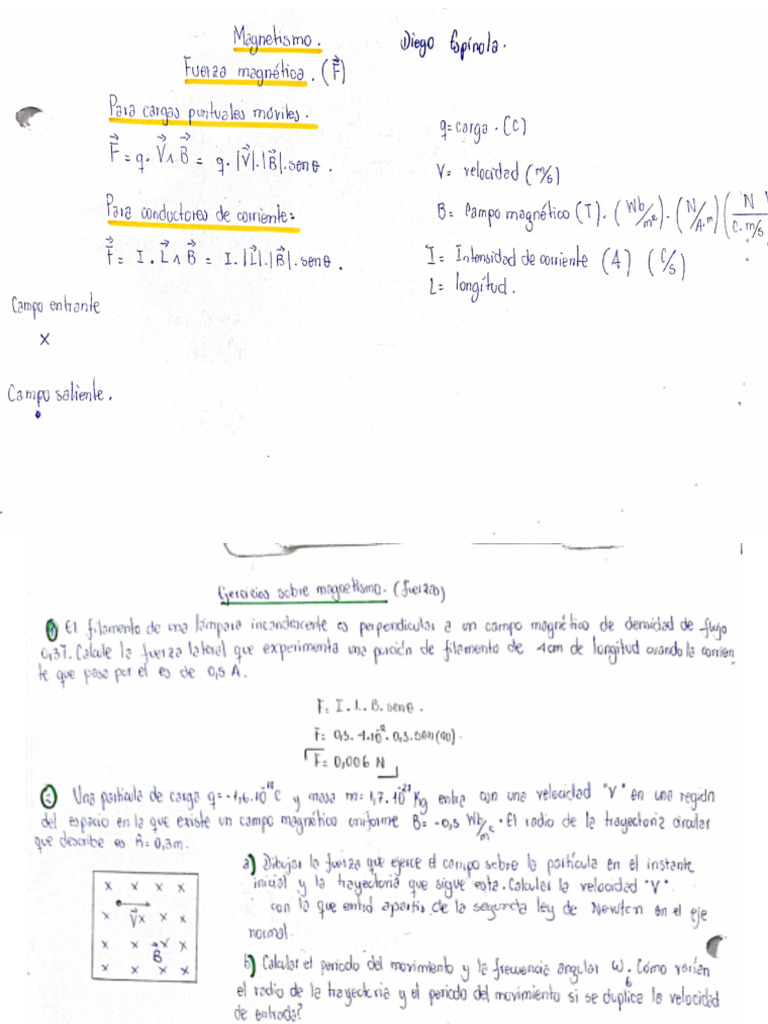 Magnetismo.
Diego Espínola.
Fuerza magnética. (F⃗)
Para cargas puntuales móviles.
F⃗ = q. V⃗ ∧ B⃗ = q. |V⃗|.|B⃗|. sen θ.
Para conductores de corriente:
F⃗ = I. L⃗ ∧ B⃗ = I. |L⃗|.|B⃗|. sen θ.
q= carga. (C)
V= velocidad (m/s)
B= Campo magnético (T). (Wb/m²). (N/A.m) (N/C.m/s
I= Intensidad de corriente (A) (C/s)
L= longitud.
Campo entrante
x
Campo saliente.
Ejercicios sobre magnetismo. (fuerza)
① El filamento de una lámpara incandescente es perpendicular a un campo magnético de densidad de flujo
0,3T. Calcule la fuerza lateral que experimenta una porción de filamento de 4cm de longitud cuando la corrien
te que pasa por el es de 0,5 A.
F= I. L. B. sen θ.
F= 0,5. 4.10⁻². 0,3. sen(90).
F= 0,006 N
② Una partícula de carga q= -1,6.10⁻¹⁹ C y masa m= 1,7.10⁻²⁷ Kg entra con una velocidad "V" en una región
del espacio en la que existe un campo magnético uniforme B= -0,5 Wb/m². El radio de la trayectoria circular
que describe es R= 0,3m.
a) Dibujar la fuerza que ejerce el campo sobre la partícula en el instante
inicial y la trayectoria que sigue esta. Calcular la velocidad "V"
con la que entró apartir de la segunda ley de Newton en el eje
normal.
x x x x
x V⃗ x x x
x x x x
B⃗
x x x x
b) Calcular el periodo del movimiento y la frecuencia angular ω. Cómo varían
el radio de la trayectoria y el periodo del movimiento si se duplica la velocidad
de entrada?